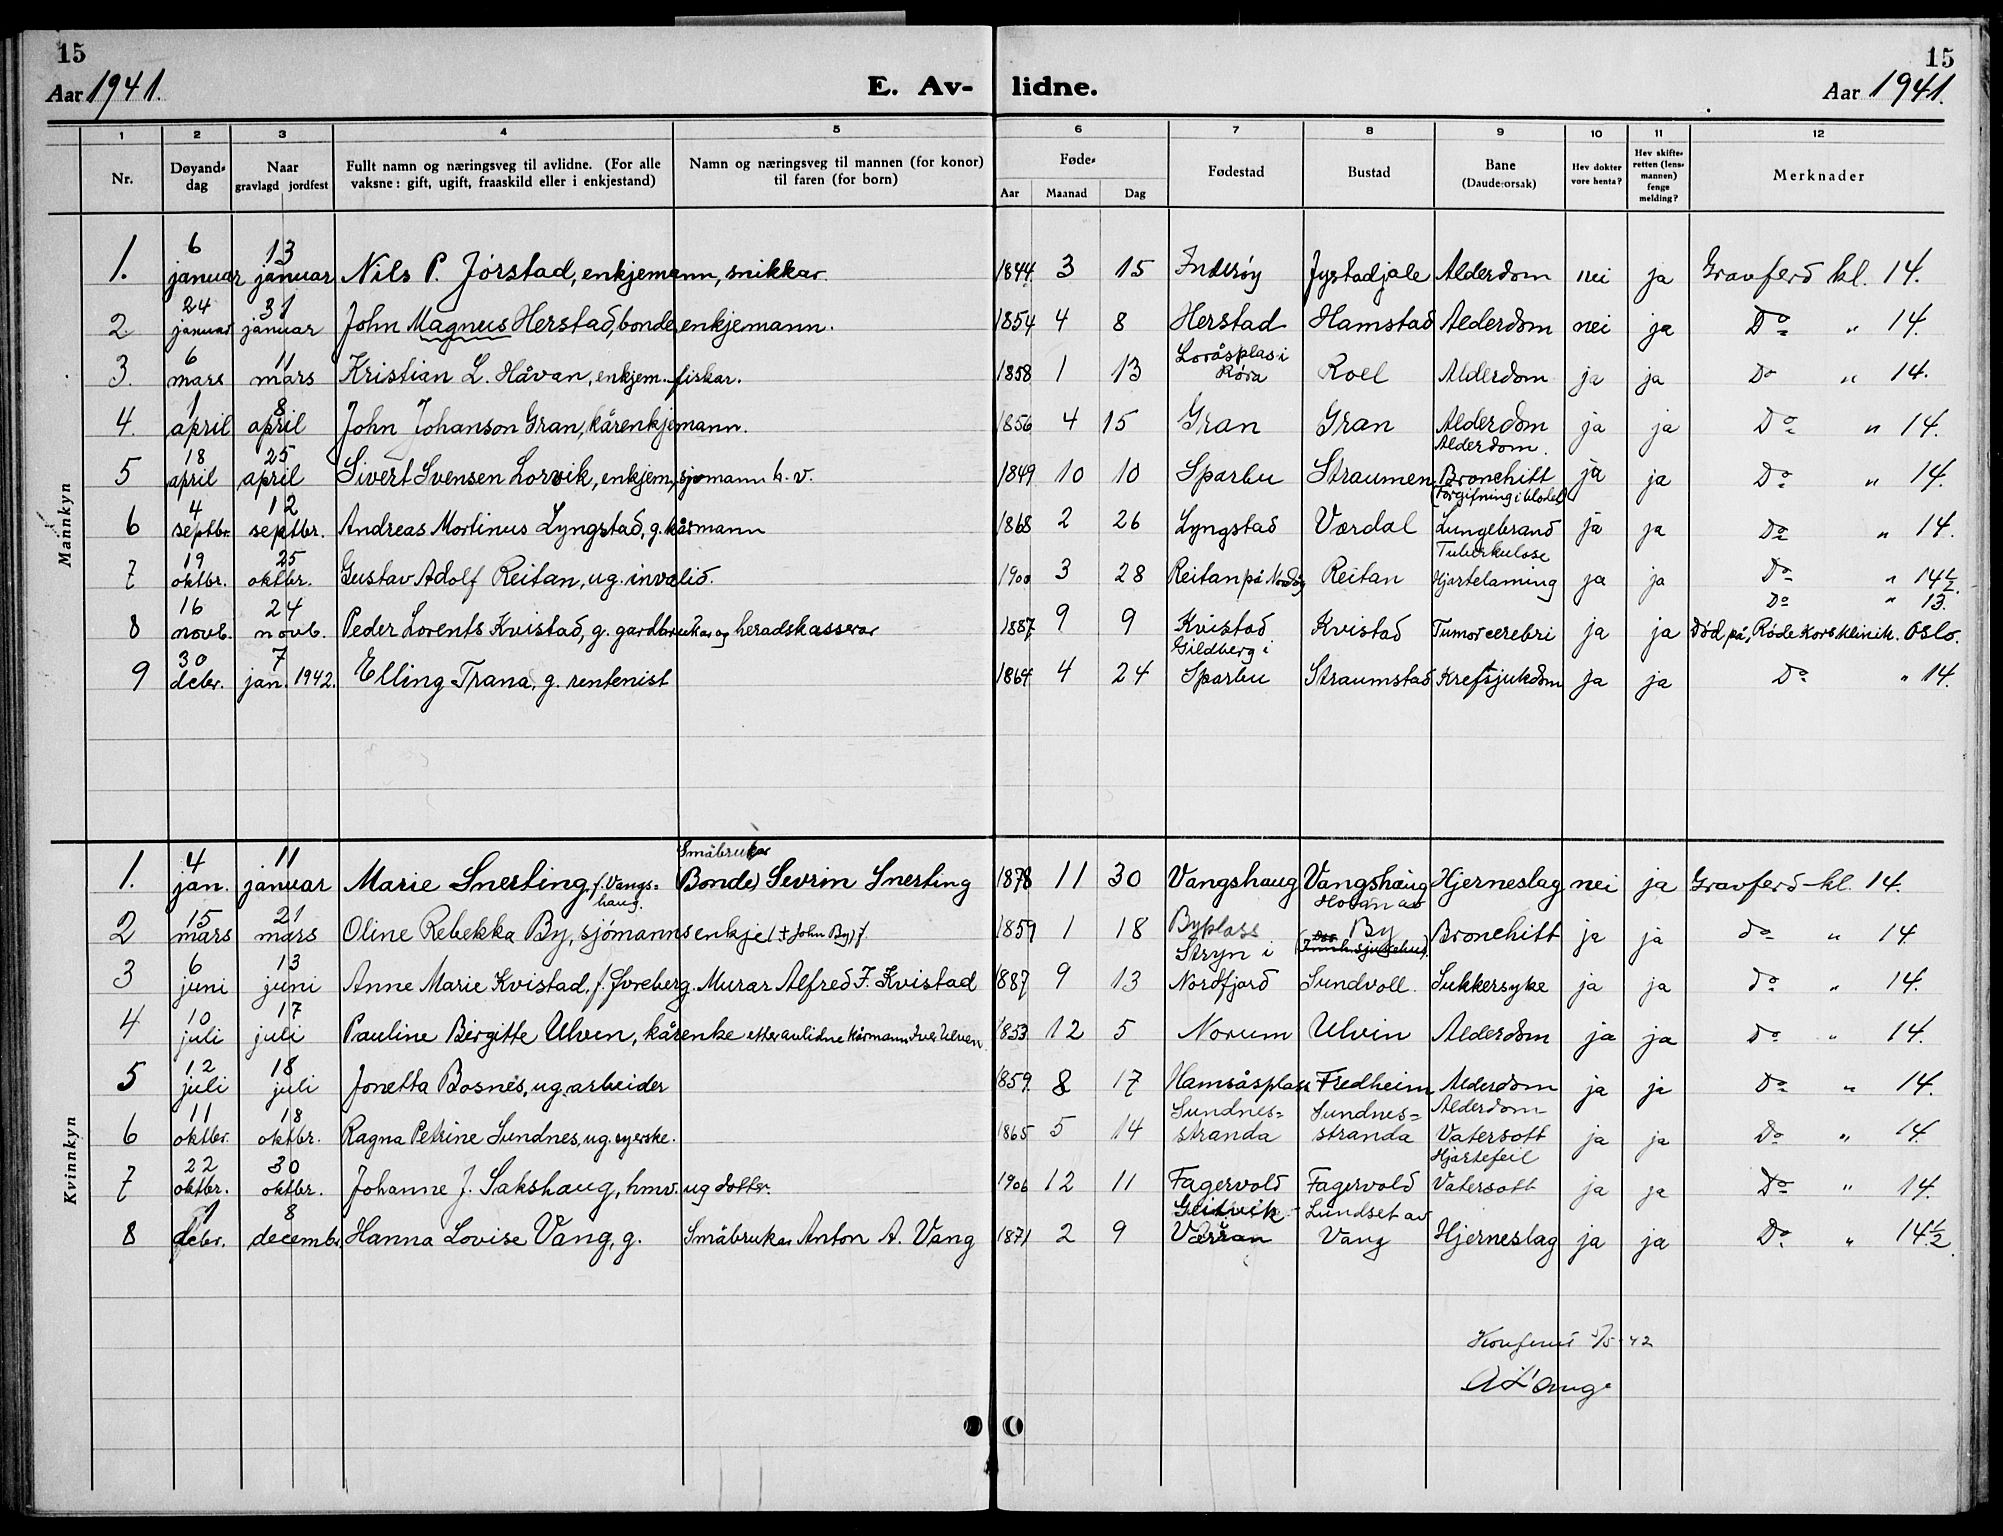 15 15
Aar 1941. E. Av- lidne. Aar 1941.
1 2 3 4 5 6 7 8 9 10 11 12
Nr. Døyand-dag Naar gravlagd jordfest Fullt namn og næringsveg til avlidne. (For alle vaksne: gift, ugift, fraaskild eller i enkjestand) Namn og næringsveg til mannen (for konor) til faren (for born) Føde- Aar Maanad Dag Fødestad Bustad Bane (Daudeorsak) Hev dokter vore henta? Hev skifte-retten (lens-mannen) fenge melding? Merknader
Mannkyn
1. 6 januar 13 januar Nils P. Jørstad, enkjemann, snikkar. 1844 3 15 Inderøy Jystadjale Alderdom nei ja Gravferd kl. 14.
2 24 januar 31 januar John Magnus Herstad, bonde, enkjemann. 1854 4 8 Herstad Hamstad Alderdom nei ja Do " 14.
3. 6 mars 11 mars Kristian L. Håvan, enkjem. fiskar. 1858 1 13 Loråsplas i Røra Roel Alderdom ja ja Do " 14.
4. 1 april 8 april John Johanson Gran, kårenkjemann. 1856 4 15 Gran Gran Alderdom ja ja Do " 14.
5 18 april 25 april Sivert Svensen Lorvik, enkjem, sjømann h. v. 1849 10 10 Sparbu Straumen Alderdom. Bronchitt ja ja Do " 14.
6 4 septbr. 12 septbr. Andreas Mortinus Lyngstad, g. kårmann 1868 2 26 Lyngstad Værdal (Forgifning i blodet) Lungebrand ja ja Do " 14.
7 19 oktbr. 25 oktbr. Gustav Adolf Reitan, ug. invalid. 1900 3 28 Reitan på Reitan Tuberkulose Hjartelaming ja ja Do " 14½
8 16 novb. 24 novb. Peder Lorents Kvistad, g. gardbrukar og heradskasserar 1887 9 9 Kvistad Kvistad Tumor cerebri ja ja Do " 13. død på, Røde Kors klinik. Oslo.
9 30 debr. 7 jan. 1942. Elling Trana, g. rentenist 1864 4 24 Gildberg i Sparbu Straumstad Kreftsjukdom ja ja Do " 14.
Kvinnkyn
1. 4 jan. 11 januar Marie Snerting, f. Vangs=haug. Småbrukar (Bonde) Sevrin Snerting 1878 11 30 Vangshaug Vangshaug Hjerneslag nei ja Gravferd kl. 14.
2 15 mars 21 mars Oline Rebekka By, sjömanns enkje (+ John By) f. 1859 1 18 Byplass Hovan av By Bronchitt ja ja do " 14.
3 6 juni 13 juni Anne Marie Kvistad, f. Övreberg. Murar Alfred F. Kvistad 1887 9 13 Stryn i Nordfjord Sundvoll. Sukkersyke ja ja do " 14.
4 10 juli 17 juli Pauline Birgitte Ulven, kårenke etter avlidne kårmann Iver Ulven. 1853 12 5 Norum Ulvin Alderdom ja ja Do " 14.
5 12 juli 18 juli Jonetta Bosnes, ug. arbeider 1859 8 17 Hamsåsplass Fredheim Alderdom ja ja Do " 14.
6 11 oktbr. 18 oktbr. Ragna Petrine Sundnes, ug. syerske. 1865 5 14 Sundnes=stranda Sundnes=stranda Alderdom Vatersott ja ja Do " 14.
7 22 oktbr. 30 oktbr. Johanne J. Sakshaug, hmv. ug dotter. 1906 12 11 Fagervold Fagervold Hjartefeil Vatersott ja ja Do " 14.
8 1 debr. 8 decembr. Hanna Lovise Vang, g. Småbrukar Anton A. Vang 1871 2 9 Geitvik Værran Lundset av Vang Hjerneslag ja ja Do " 14½.
Konferert 5/5-42
A Lange